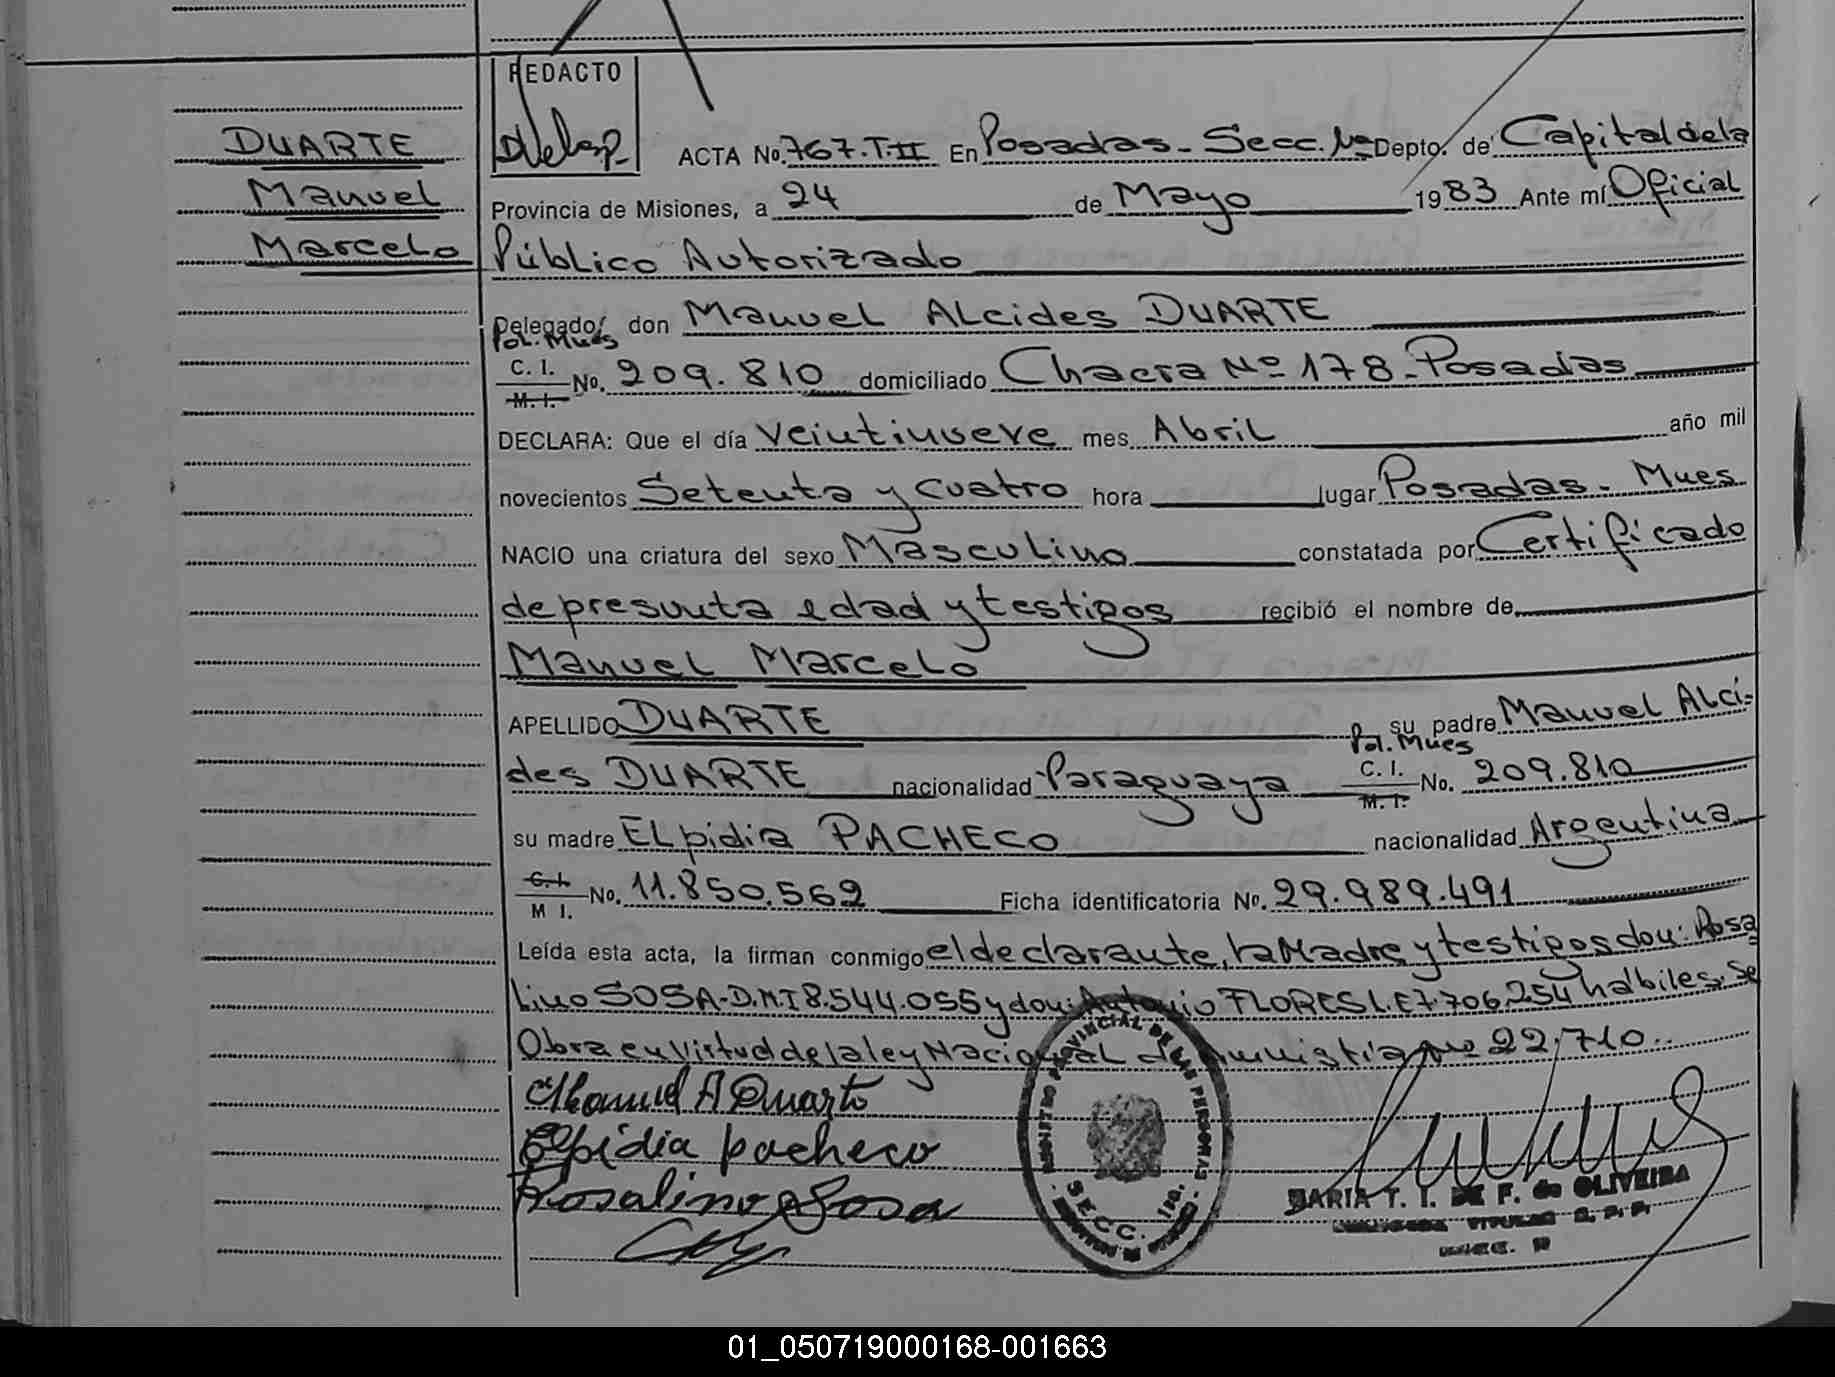 REDACTO
DUARTE
Manuel
Marcelo
ACTA No. 767.T.II En Posadas - Secc. 1a Depto. de Capital de la
Provincia de Misiones, a 24 de Mayo 1983 Ante mí Oficial
Público Autorizado
Delegado/ don Manuel Alcides DUARTE
Pol. Mnes
C. I. No. 209.810 domiciliado Chacra Nº 178 - Posadas
M. I.
DECLARA: Que el día Veintinueve mes Abril año mil
novecientos Setenta y cuatro hora lugar Posadas - Mnes
NACIO una criatura del sexo Masculino constatada por Certificado
de presunta edad y testigos recibió el nombre de
Manuel Marcelo
APELLIDO DUARTE su padre Manuel Alci-
Pol. Mnes
des DUARTE nacionalidad Paraguaya C. I. No. 209.810
M. I.
su madre ELpidia PACHECO nacionalidad Argentina
C. I. No. 11.850.562 Ficha identificatoria No. 29.989.491
M I.
Leída esta acta, la firman conmigo el declarante, la Madre y testigos don: Rosa
lino SOSA - D.N.I 8.544.055 y don: Antonio FLORES L.E 7.706.254 habiles. Se
Obra en Virtud de la ley Nacional de amnistia nº 22.710..
Manuel A Duarte
Elpidia pacheco
Rosalino Sosa
REGISTRO PROVINCIAL DE LAS PERSONAS
SECC. 1ra.
MARIA T. I. DE F. de OLIVEIRA
01_050719000168-001663